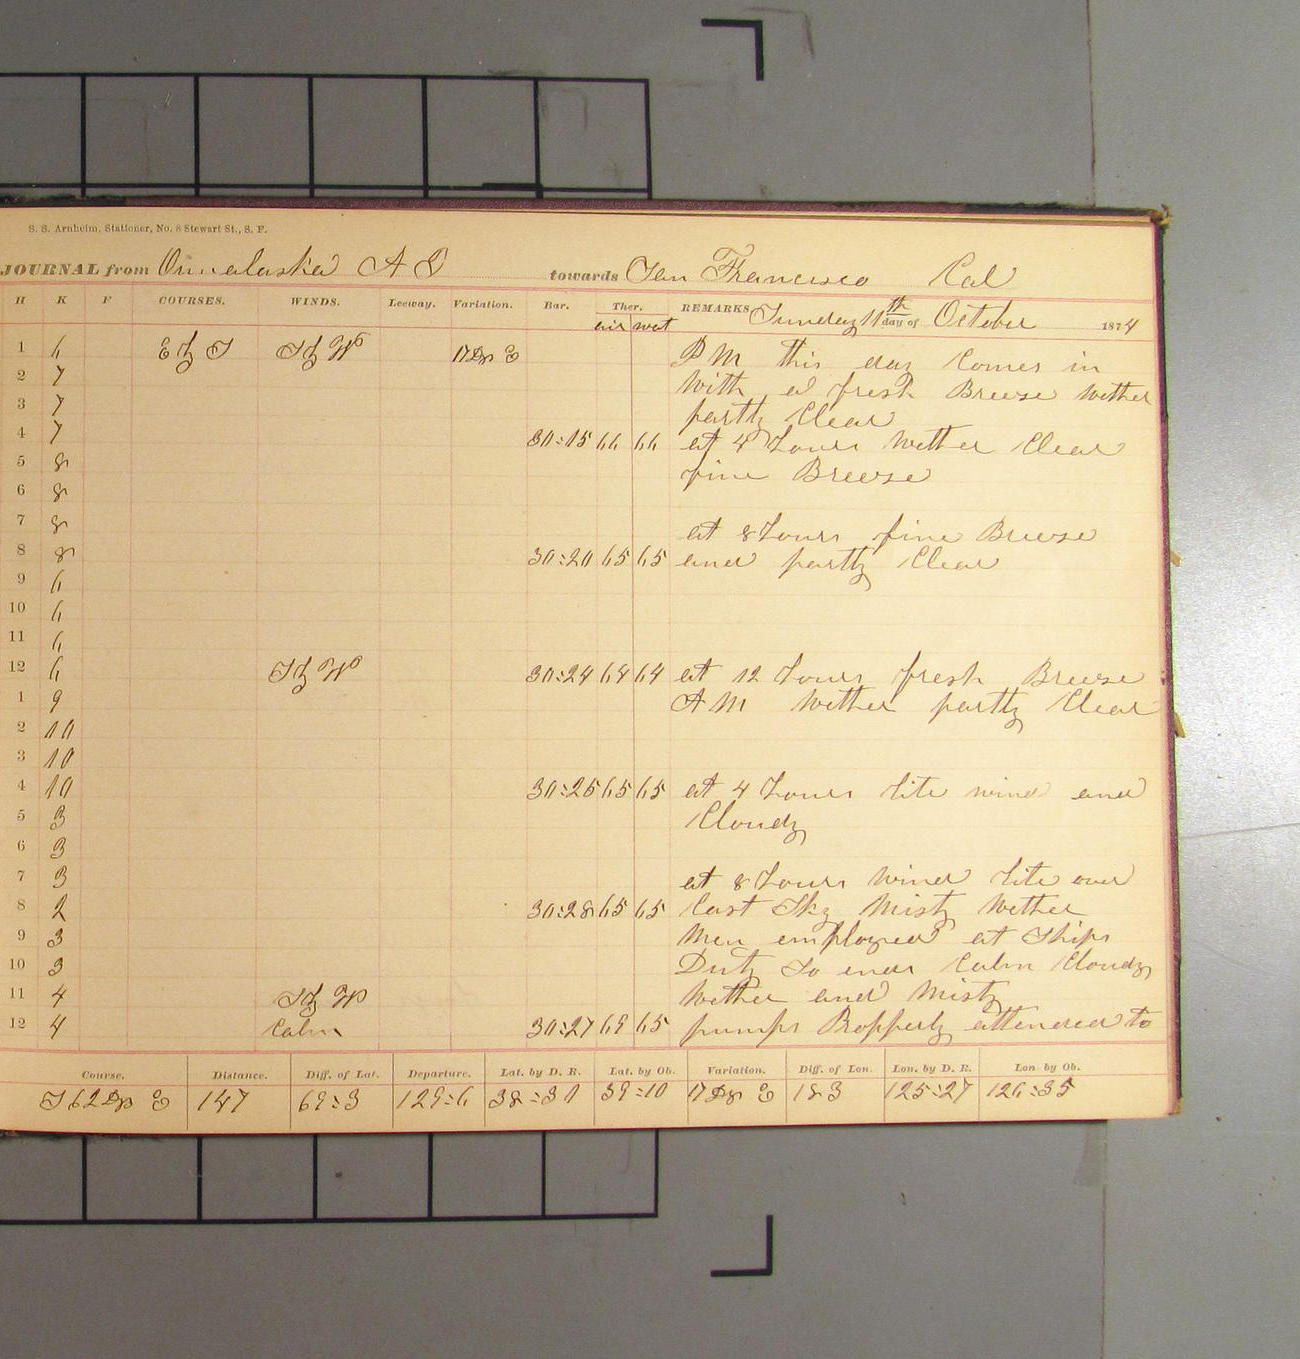 S. S. Arnheim, Stationer, No. 8 Stewart St., S. F.
JOURNAL from Ounalaska A T towards San Francisco Cal
H K F COURSES. WINDS. Leeway. Variation. Bar. Ther. REMARKS Sunday 11th day of October 1874
air wat
1 6 E by S S by W 17 Dg E P M this day Comes in
2 7 With a fresh Breese wether
3 7 partly Clear
4 7 30:15 66 66 at 4 Hours Wether Clear
5 8 fine Breese
6 8
7 8 at 8 Hours fine Breese
8 8 30:20 65 65 and partly Clear
9 6
10 6
11 6
12 6 S by W 30:24 64 64 at 12 Hours fresh Breese
1 9 A M Wether partly Clear
2 10
3 10
4 10 30:26 65 65 at 4 Hours lite wind and
5 3 Cloudy
6 3
7 3 at 8 Hours Wind lite over
8 2 30:28 65 65 Cast Sky Misty Wether
9 3 Men employed at Ships
10 3 Duty So ends Calm Cloudy
11 4 S by W Wether and Misty
12 4 Calm 30:27 69 65 pumps Propperly attended to
Course. Distance. Diff. of Lat. Departure. Lat. by D. R. Lat. by Ob. Variation. Diff. of Lon. Lon. by D. R. Lon by Ob.
S 62 Dg E 147 69:3 129:6 38:30 39:10 17 Dg E 183 125:27 126:35